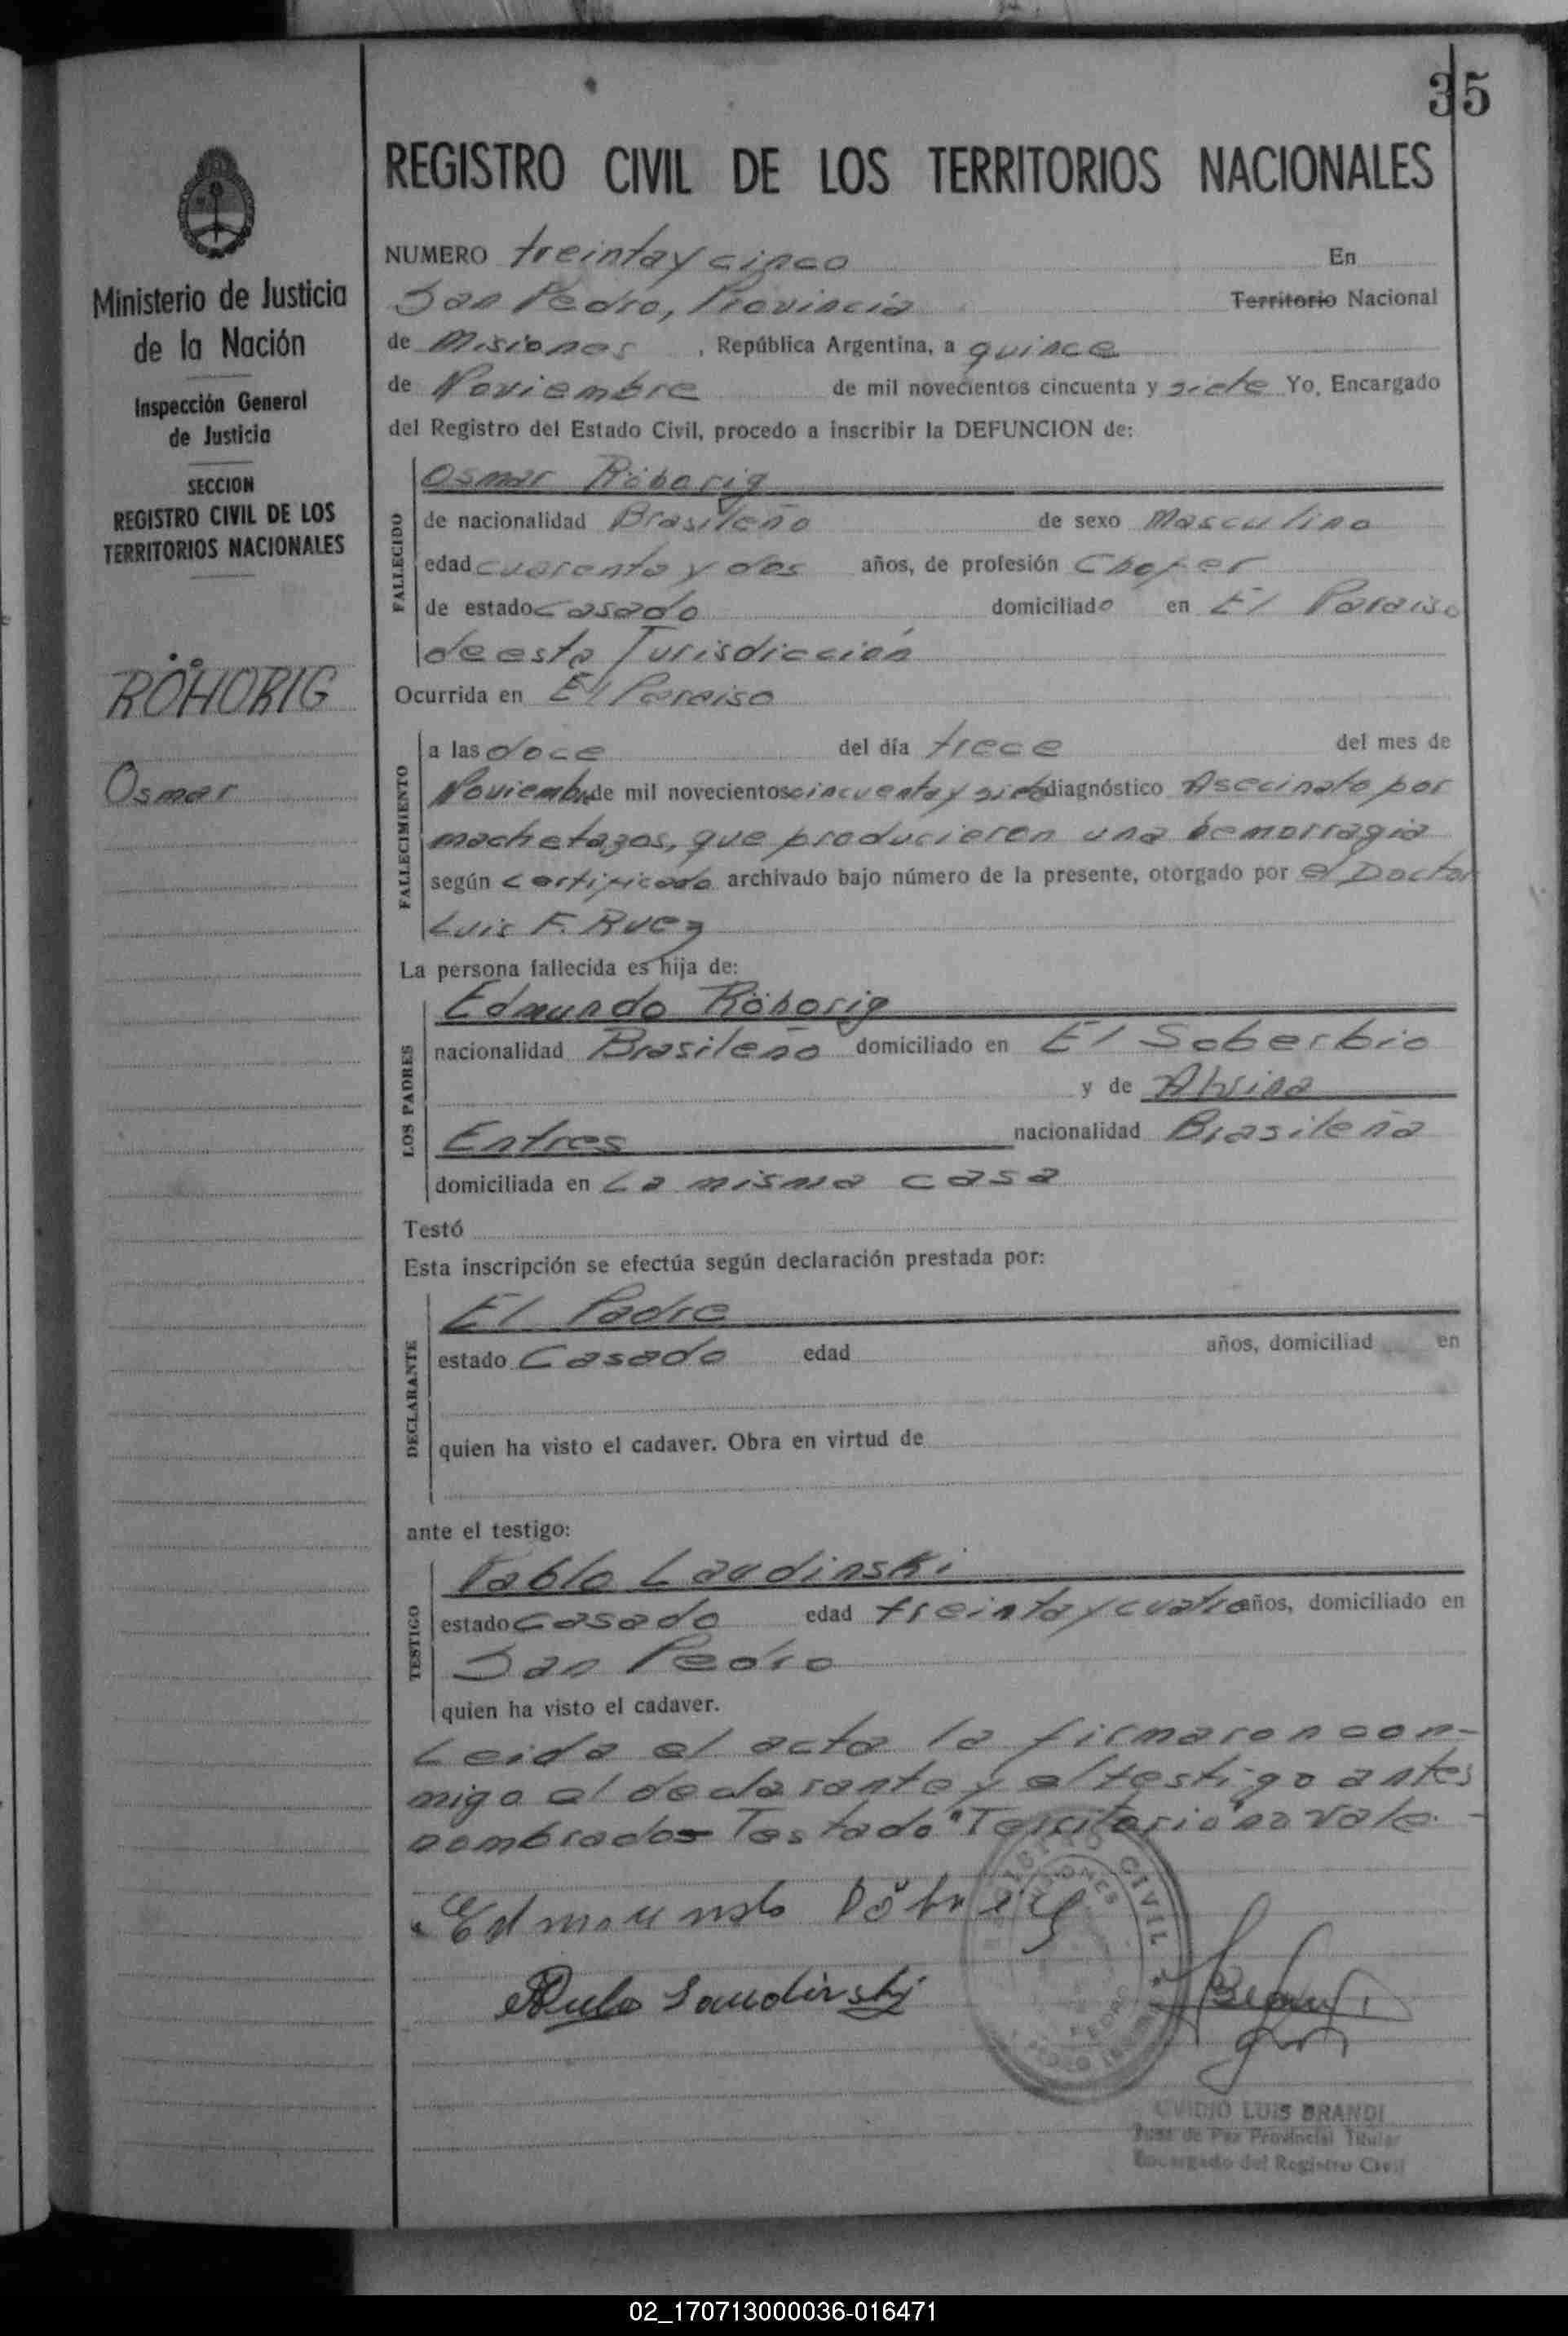 35
REGISTRO CIVIL DE LOS TERRITORIOS NACIONALES
Ministerio de Justicia
de la Nación
Inspección General
de Justicia
SECCION
REGISTRO CIVIL DE LOS
TERRITORIOS NACIONALES
RÖHORIG
Osmar
NUMERO treinta y cinco En
San Pedro, Provincia Territorio Nacional
de Misiones, República Argentina, a quince
de Noviembre de mil novecientos cincuenta y siete Yo, Encargado
del Registro del Estado Civil, procedo a inscribir la DEFUNCION de:
FALLECIDO
Osmar Röhorig
de nacionalidad Brasileño de sexo Masculino
edad cuarenta y dos años, de profesión Chofer
de estado casado domiciliado en El Paraiso
de esta Jurisdicción
Ocurrida en El Paraiso
FALLECIMIENTO
a las doce del día trece del mes de
Noviembre de mil novecientos cincuenta y siete diagnóstico Asecinato por
machetazos, que producieron una hemorragia
según certificado archivado bajo número de la presente, otorgado por el Doctor
Luis F. Ruez
La persona fallecida es hija de:
LOS PADRES
Edmundo Röhorig
nacionalidad Brasileño domiciliado en El Soberbio
y de Alvina
Entres nacionalidad Brasileña
domiciliada en La misma casa
Testó
Esta inscripción se efectúa según declaración prestada por:
DECLARANTE
El Padre
estado Casado edad años, domiciliad en
quien ha visto el cadaver. Obra en virtud de
ante el testigo:
TESTIGO
Pablo Laudinski
estado casado edad treinta y cuatro años, domiciliado en
San Pedro
quien ha visto el cadaver.
Leida el acta la firmaron con-
migo el declarante y el testigo antes
nombrados Testado "Territorio" no vale.-
Edmundo Röhrig
Laudinski
REGISTRO CIVIL
MISIONES
OVIDIO LUIS BRANDI
Juez de Paz Provincial Titular
Encargado del Registro Civil
02_170713000036-016471